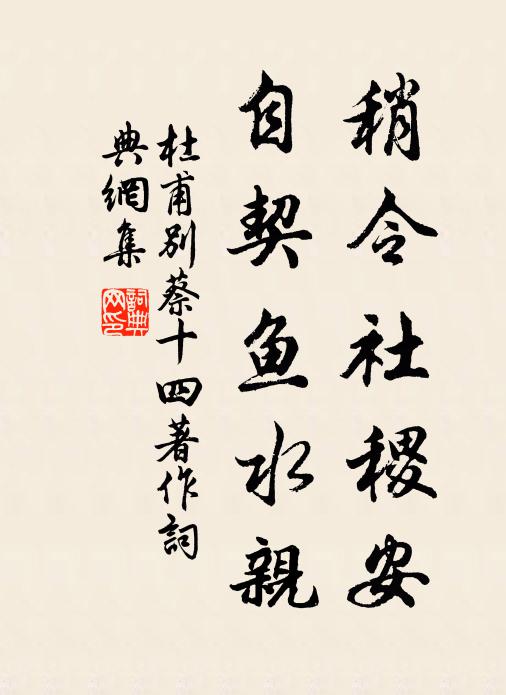 稍令社稷安
自契鱼水親
杜甫别蔡十四著作詞
典網集
詞典網印